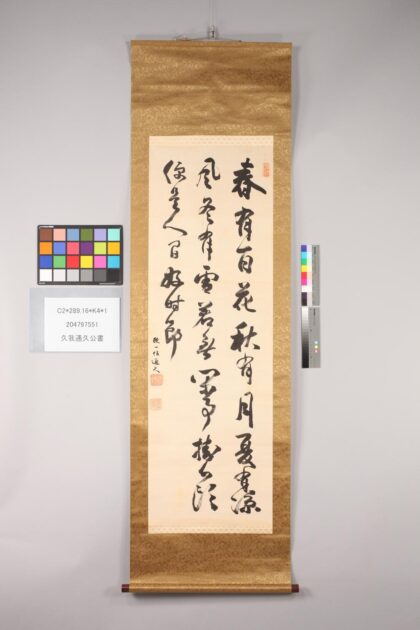 春有百花秋有月夏有涼
風冬有雪若無閑事掛心頭
便是人間好時節
從一位通久
C2*289.16*K4*1
204797551
久我通久公書